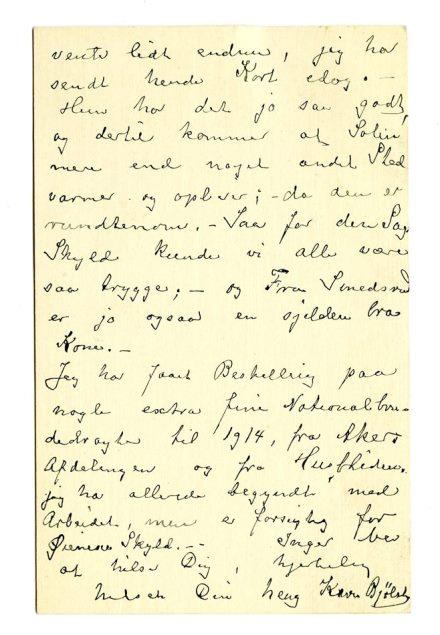 vente lidt endnu, jeg har
sendt hende Kort idag. —
Hun har det jo saa godt,
og dertil kommer at Solin
mere end noget andet Sted
varmer og opliver; — da den er
rundtenom. — Saa for den Sags
Skyld kunde vi alle være
saa trygge; — og Fru Smedsrud
er jo ogsaa en sjelden bra
Kone. —
Jeg har faaet Bestilling paa
nogle extra fine Nationalbun-
dedragter til 1914, fra Akers
Afdelingen og fra Husfliden,
jeg ha allerede begyndt med
Arbeidet, men er forsigtig for
Øienenes Skyld. — Inger ber
at hilse Dig, hjertelig
hilsen Din heng Karen Bjølst